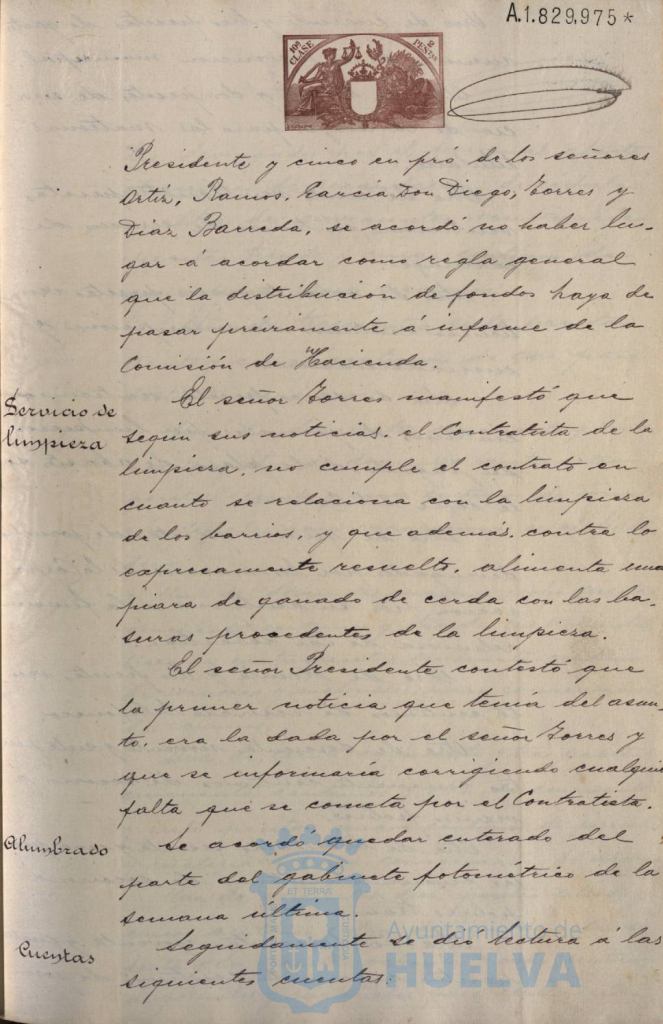 A.1.829,975*
10ª CLASE
2 PESETAS
Presidente y cinco en pró de los señores
Ortíz, Ramos, García Don Diego, Torres y
Díaz Barreda, se acordó no haber lu-
gar á acordar como regla general
que la distribución de fondos haya de
pasar préviamente á informe de la
Comisión de Hacienda.
Servicio de
limpieza
El señor Torres manifestó que
segun sus noticias, el Contratista de la
limpieza, no cumple el contrato en
cuanto se relaciona con la limpieza
de los barrios, y que además, contra lo
expresamente resuelto, alimenta una
piara de ganado de cerda con las ba-
suras procedentes de la limpieza.
El señor Presidente contestó que
la primer noticia que tenía del asun-
to, era la dada por el señor Torres y
que se informaría corrigiendo cualquier
falta que se cometa por el Contratista.
Alumbrado
Se acordó quedar enterado del
parte del gabinete fotométrico de la
semana última.
Cuentas
Seguidamente se dio lectura á las
siguientes cuentas:
ET TERRÆ
Ayuntamiento de
HUELVA